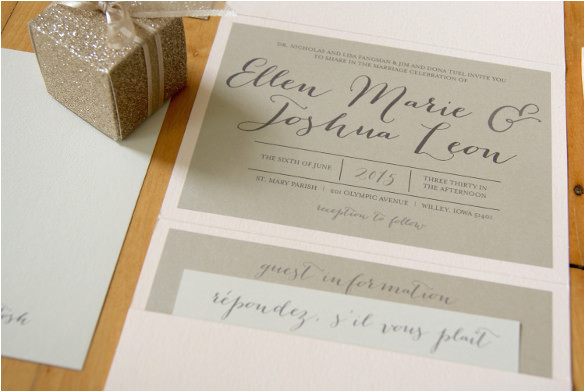 DR. NICHOLAS AND LISA FANGMAN & JIM AND DONA YUEL INVITE YOU
TO SHARE IN THE MARRIAGE CELEBRATION OF
Ellen Marie &
Joshua Leon
THE SIXTH OF JUNE
2015
THREE THIRTY IN
THE AFTERNOON
ST. MARY PARISH
201 OLYMPIC AVENUE
WILLEY, IOWA 51401
reception to follow
guest information
répondez, s'il vous plaît